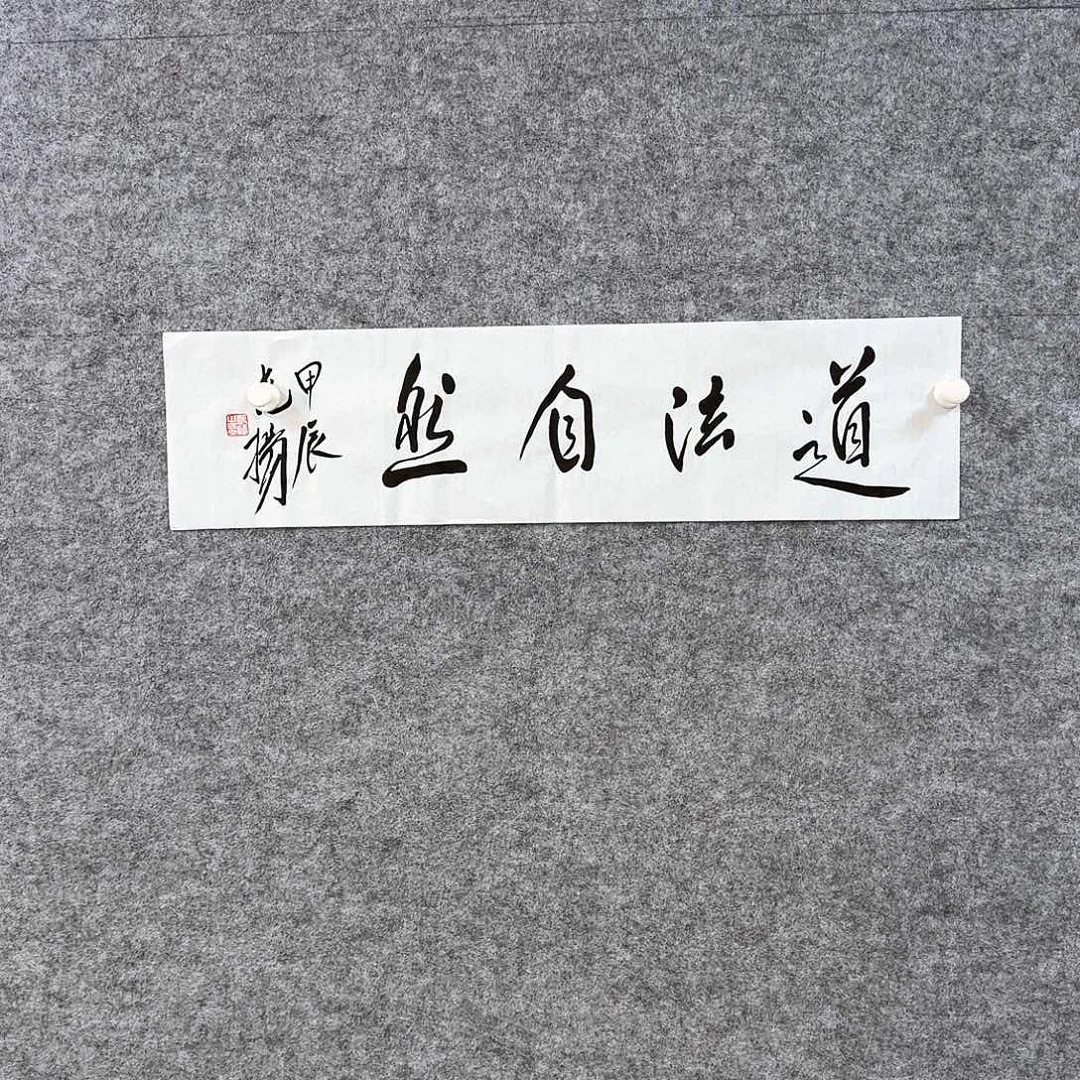 道法自然
甲辰